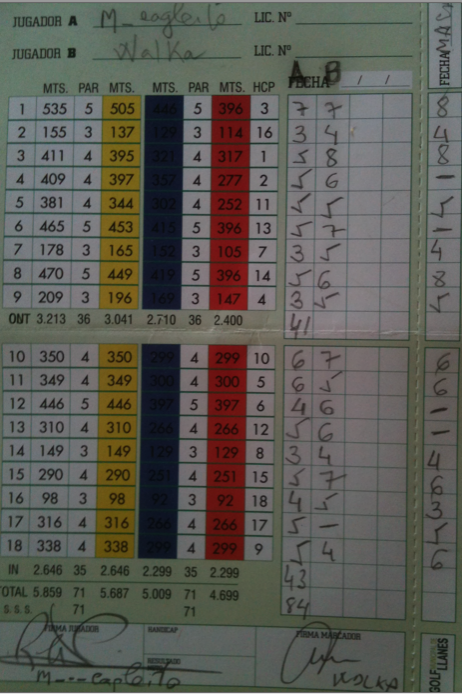 JUGADOR A M_eagleito LIC. Nº
JUGADOR B Walka LIC. Nº
A B
MTS. PAR MTS. MTS. PAR MTS. HCP FECHA / / FECHA
1 535 5 505 446 5 396 3 7 7 8
2 155 3 137 129 3 114 16 3 4 4
3 411 4 395 321 4 317 1 5 8 8
4 409 4 397 357 4 277 2 5 6 -
5 381 4 344 302 4 252 11 5 5 5
6 465 5 453 415 5 396 13 5 7 -
7 178 3 165 152 3 105 7 3 5 4
8 470 5 449 419 5 396 14 5 6 8
9 209 3 196 169 3 147 4 3 5 5
OUT 3.213 36 3.041 2.710 36 2.400 41
10 350 4 350 299 4 299 10 6 7 6
11 349 4 349 300 4 300 5 6 5 6
12 446 5 446 397 5 397 6 4 6 -
13 310 4 310 266 4 266 12 5 6 -
14 149 3 149 129 3 129 8 3 4 4
15 290 4 290 251 4 251 15 5 7 6
16 98 3 98 92 3 92 18 4 5 3
17 316 4 316 266 4 266 17 5 - 5
18 338 4 338 299 4 299 9 5 4 6
IN 2.646 35 2.646 2.299 35 2.299 43
TOTAL 5.859 71 5.687 5.009 71 4.699 84
S.S.S. 71 71
FIRMA JUGADOR HANDICAP FIRMA MARCADOR
RESULTADO
WALKA
GOLF LLANES